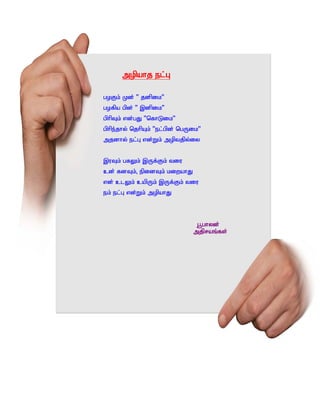 அழியாத நட்பு
பழகும் முன் " தனிமை"
பழகிய பின் " இனிமை"
பிரிவும் என்பது "கொடுமை"
பிரிந்தால் தெரியும் "நட்பின் பெருமை"
அதனால் நட்பு என்றும் அழிவதில்லை
இரவும் பகலும் இருக்கும் வரை
உன் கனவும், நினைவும் மறையாது
என் உடலும் உயிரும் இருக்கும் வரை
நம் நட்பு என்றும் அழியாது
பூபாலன்
அதிசயங்கள்